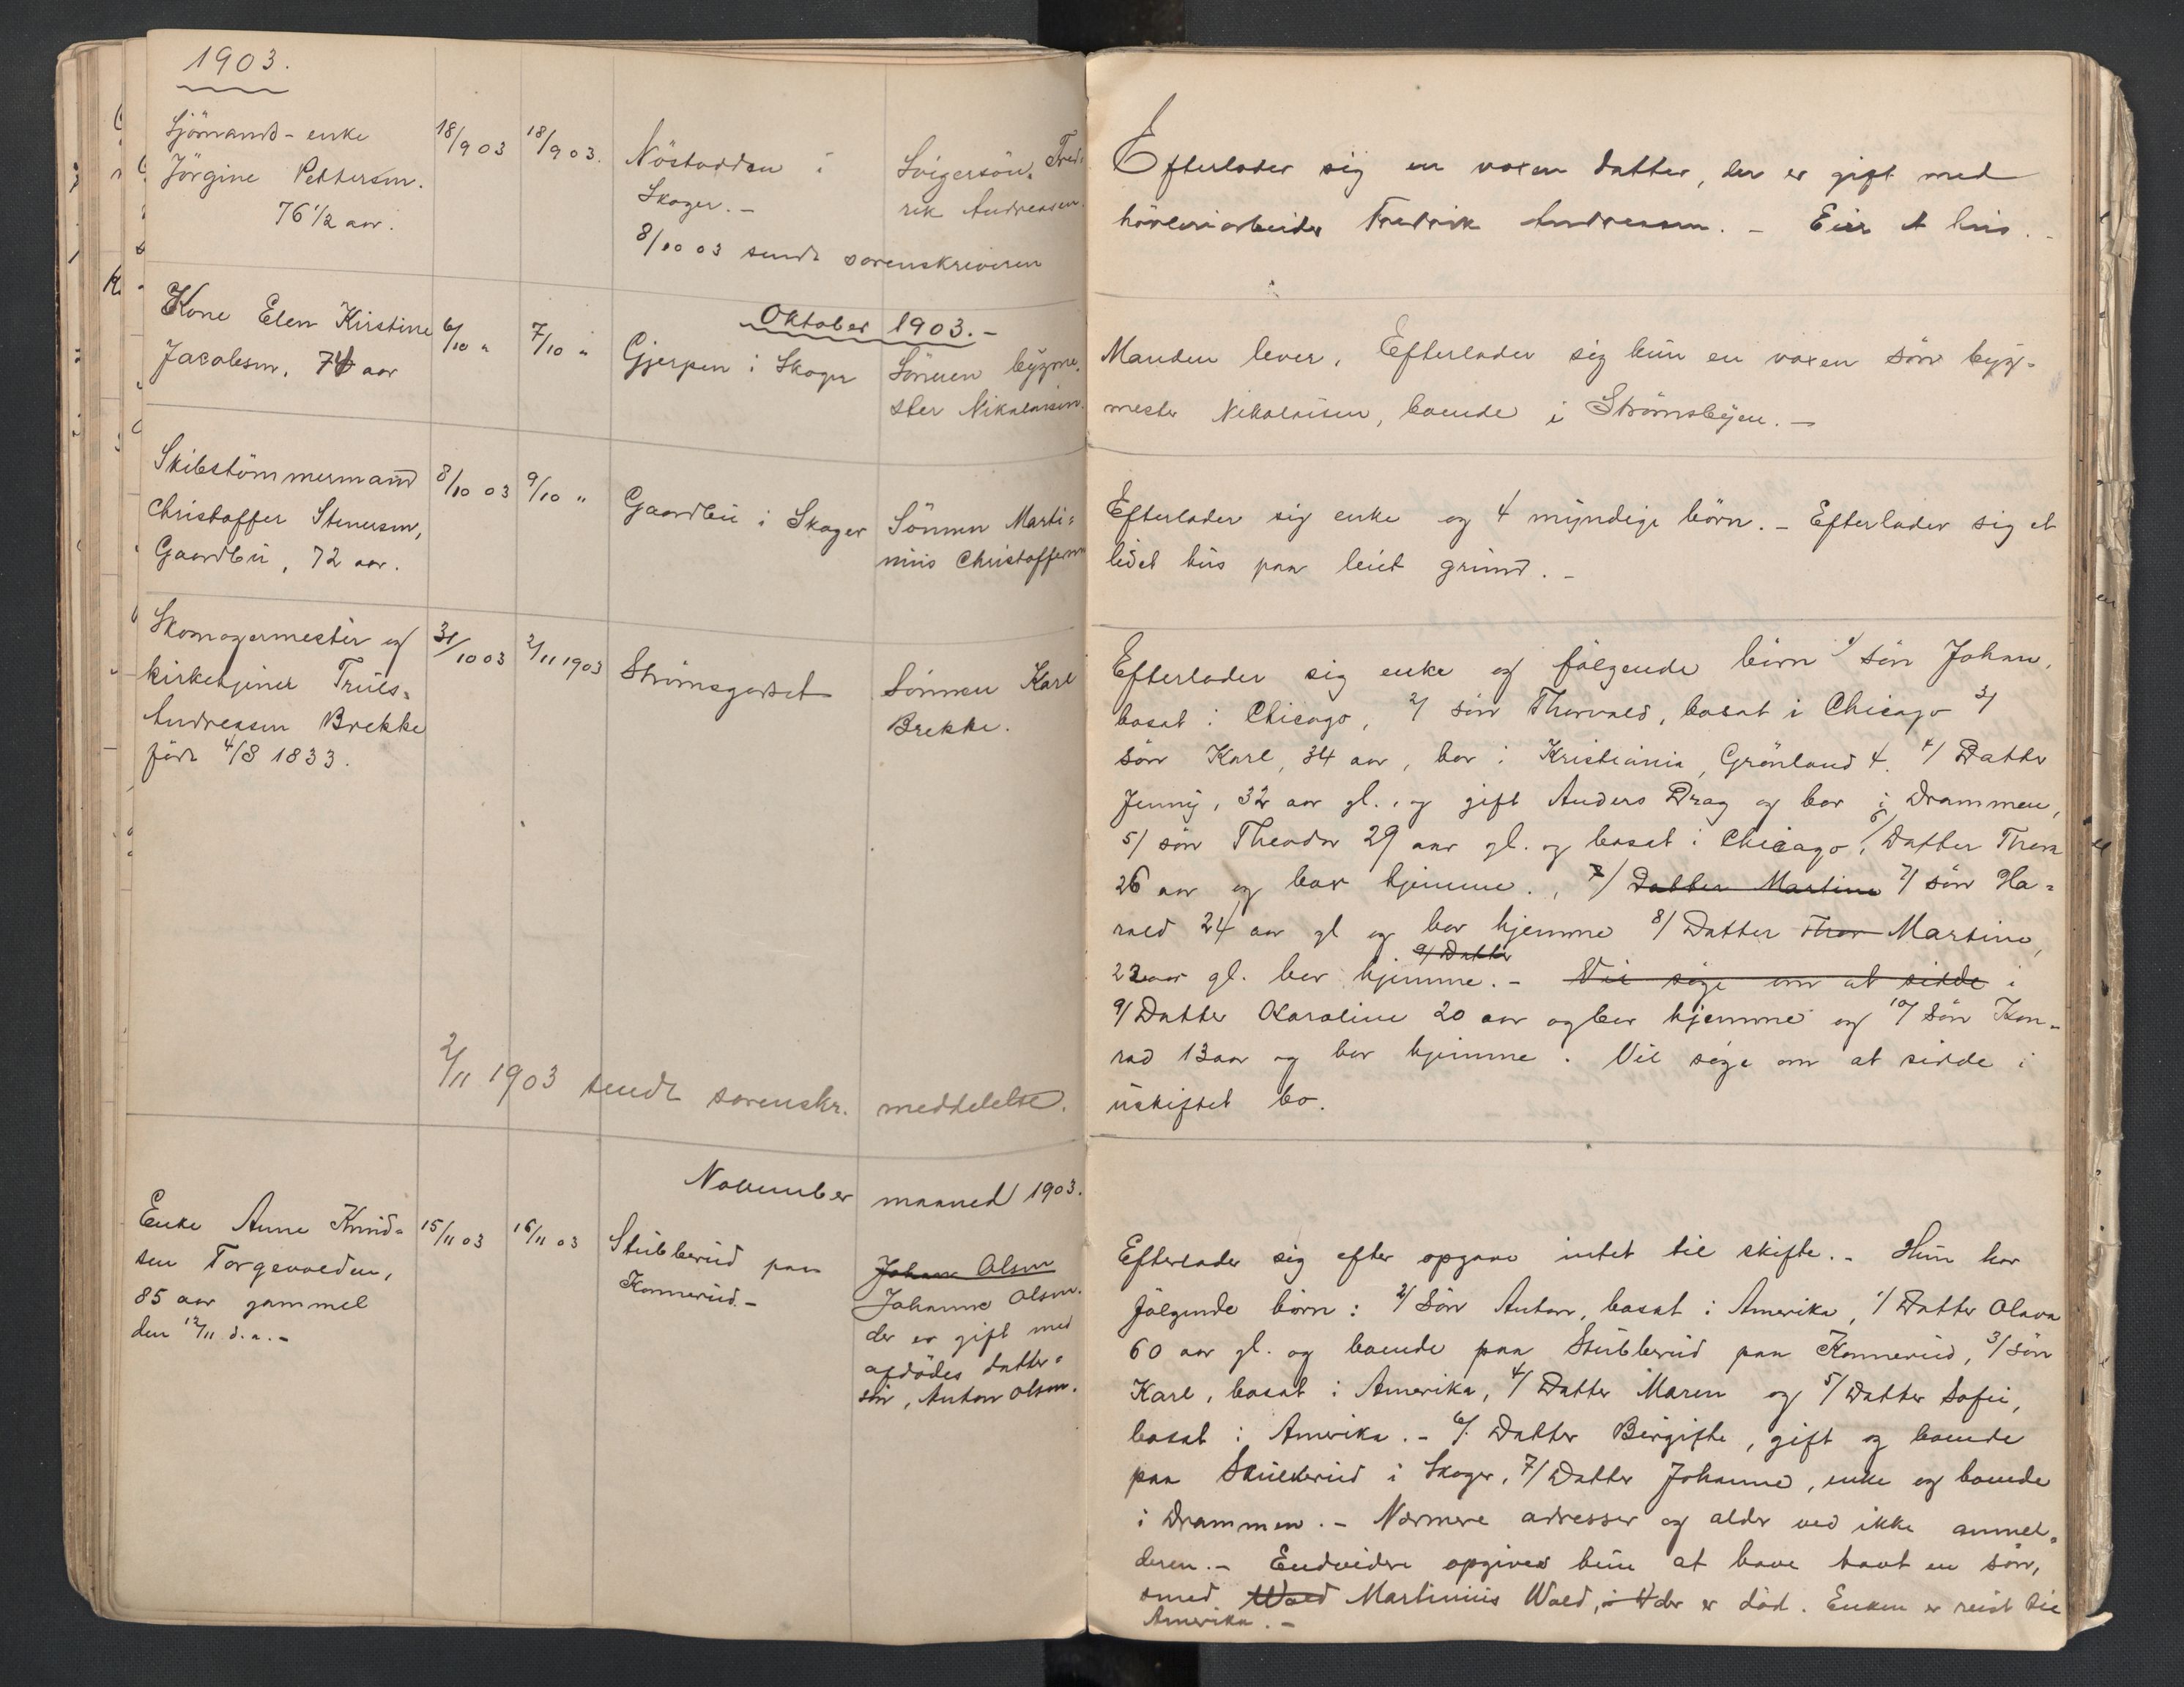 1903.
Sjömands-enke
Jörgine Pettersen.
76 1/2 aar.
18/9 03
18/9 03.
Nöstodden i
Skoger.-
Svigersön, Fred-
rik Andreasen.
8/10 03 sendt sorenskriveren
Efterlader sig en voxen datter, der er gift med
hövleriarbeider Fredrik Andreasen. - Eier et hus.-
Oktober 1903.-
Kone Elen Kirstine
Jacobsen, 74 aar
6/10 "
7/10 "
Gjerpen i Skoger
Sönnen bygme-
ster Nikolaisen.
Manden lever. Efterlader sig kun en voxen sön byg-
mester Nikolaisen, boende i Strömsbyen.-
Skibstömmermand
Christoffer Stenersen,
Gaardbu, 72 aar.
8/10 03
9/10 "
Gaardbu i Skoger
Sönnen Marti-
nius Christoffersen
Efterlader sig enke og 4 myndige börn.- Efterlader sig et
lidet hus paa leiet grund.-
Skomagermester og
kirketjener Truls
Andreasen Brekke
född 4/8 1833.
31/10 03
2/11 1903
Strömsgodset
Sönnen Karl
Brekke.
2/11 1903 sendt sorenskr. meddelelse.
Efterlader sig enke og fölgende börn 1/ sön Johan,
bosat i Chicago, 2/ sön Thorvald, bosat i Chicago 3/
sön Karl, 34 aar, bor i Kristiania, Grönland 4. 4/ Datter
Jenny, 32 aar gl., og gift Anders Drag og bor i Drammen,
5/ sön Theodor 29 aar gl. og bosat i Chicago, 6/ Datter Thora
26 aar og bor hjemme., 7/ Datter Martine 7/ sön Ha-
rald 24 aar gl og bor hjemme 8/ Datter Thor Martine,
22 aar gl. bor hjemme.- 9/ Datter Vil söge om at sidde i
9/ Datter Karoline 20 aar og bor hjemme og 10/ Sön Kon-
rad 13 aar og bor hjemme. Vil söge om at sidde i
uskiftet bo.
November maaned 1903.
Enke Anne Knud-
sen Torgevolden,
85 aar gammel
den 12/11 d.a.-
15/11 03
16/11 03
Stubberud paa
Konnerud.-
Johan Olsen
Johanne Olsen.
der er gift med
afdödes datter-
sön, Anton Olsen.
Efterlader sig efter opgave intet til skifte.- Hun har
fölgende börn: 2/ Sön Anton, bosat i Amerika, 1/ Datter Olava
60 aar gl. og boende paa Stubberud paa Konnerud, 3/ sön
Karl, bosat i Amerika, 4/ Datter Maren og 5/ Datter Sofie,
bosat i Amerika.- 6/ Datter Birgitte, gift og boende
paa Skulerud i Skoger, 7/ Datter Johanne, enke og boende
i Drammen.- Nærmere adresser og alder ved ikke anmel-
deren.- Endvidere opgives hun at have havt en sön,
smed Wold Martinius Wold, der er död. Enken er reist til
Amerika.-